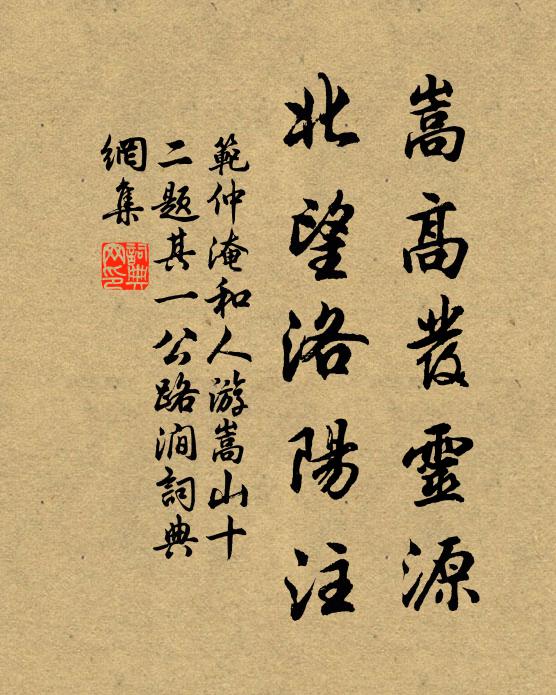 嵩高發靈源
北望洛陽注
範仲淹和人游嵩山十
二題其一公路澗詞典
網集
詞典
网印